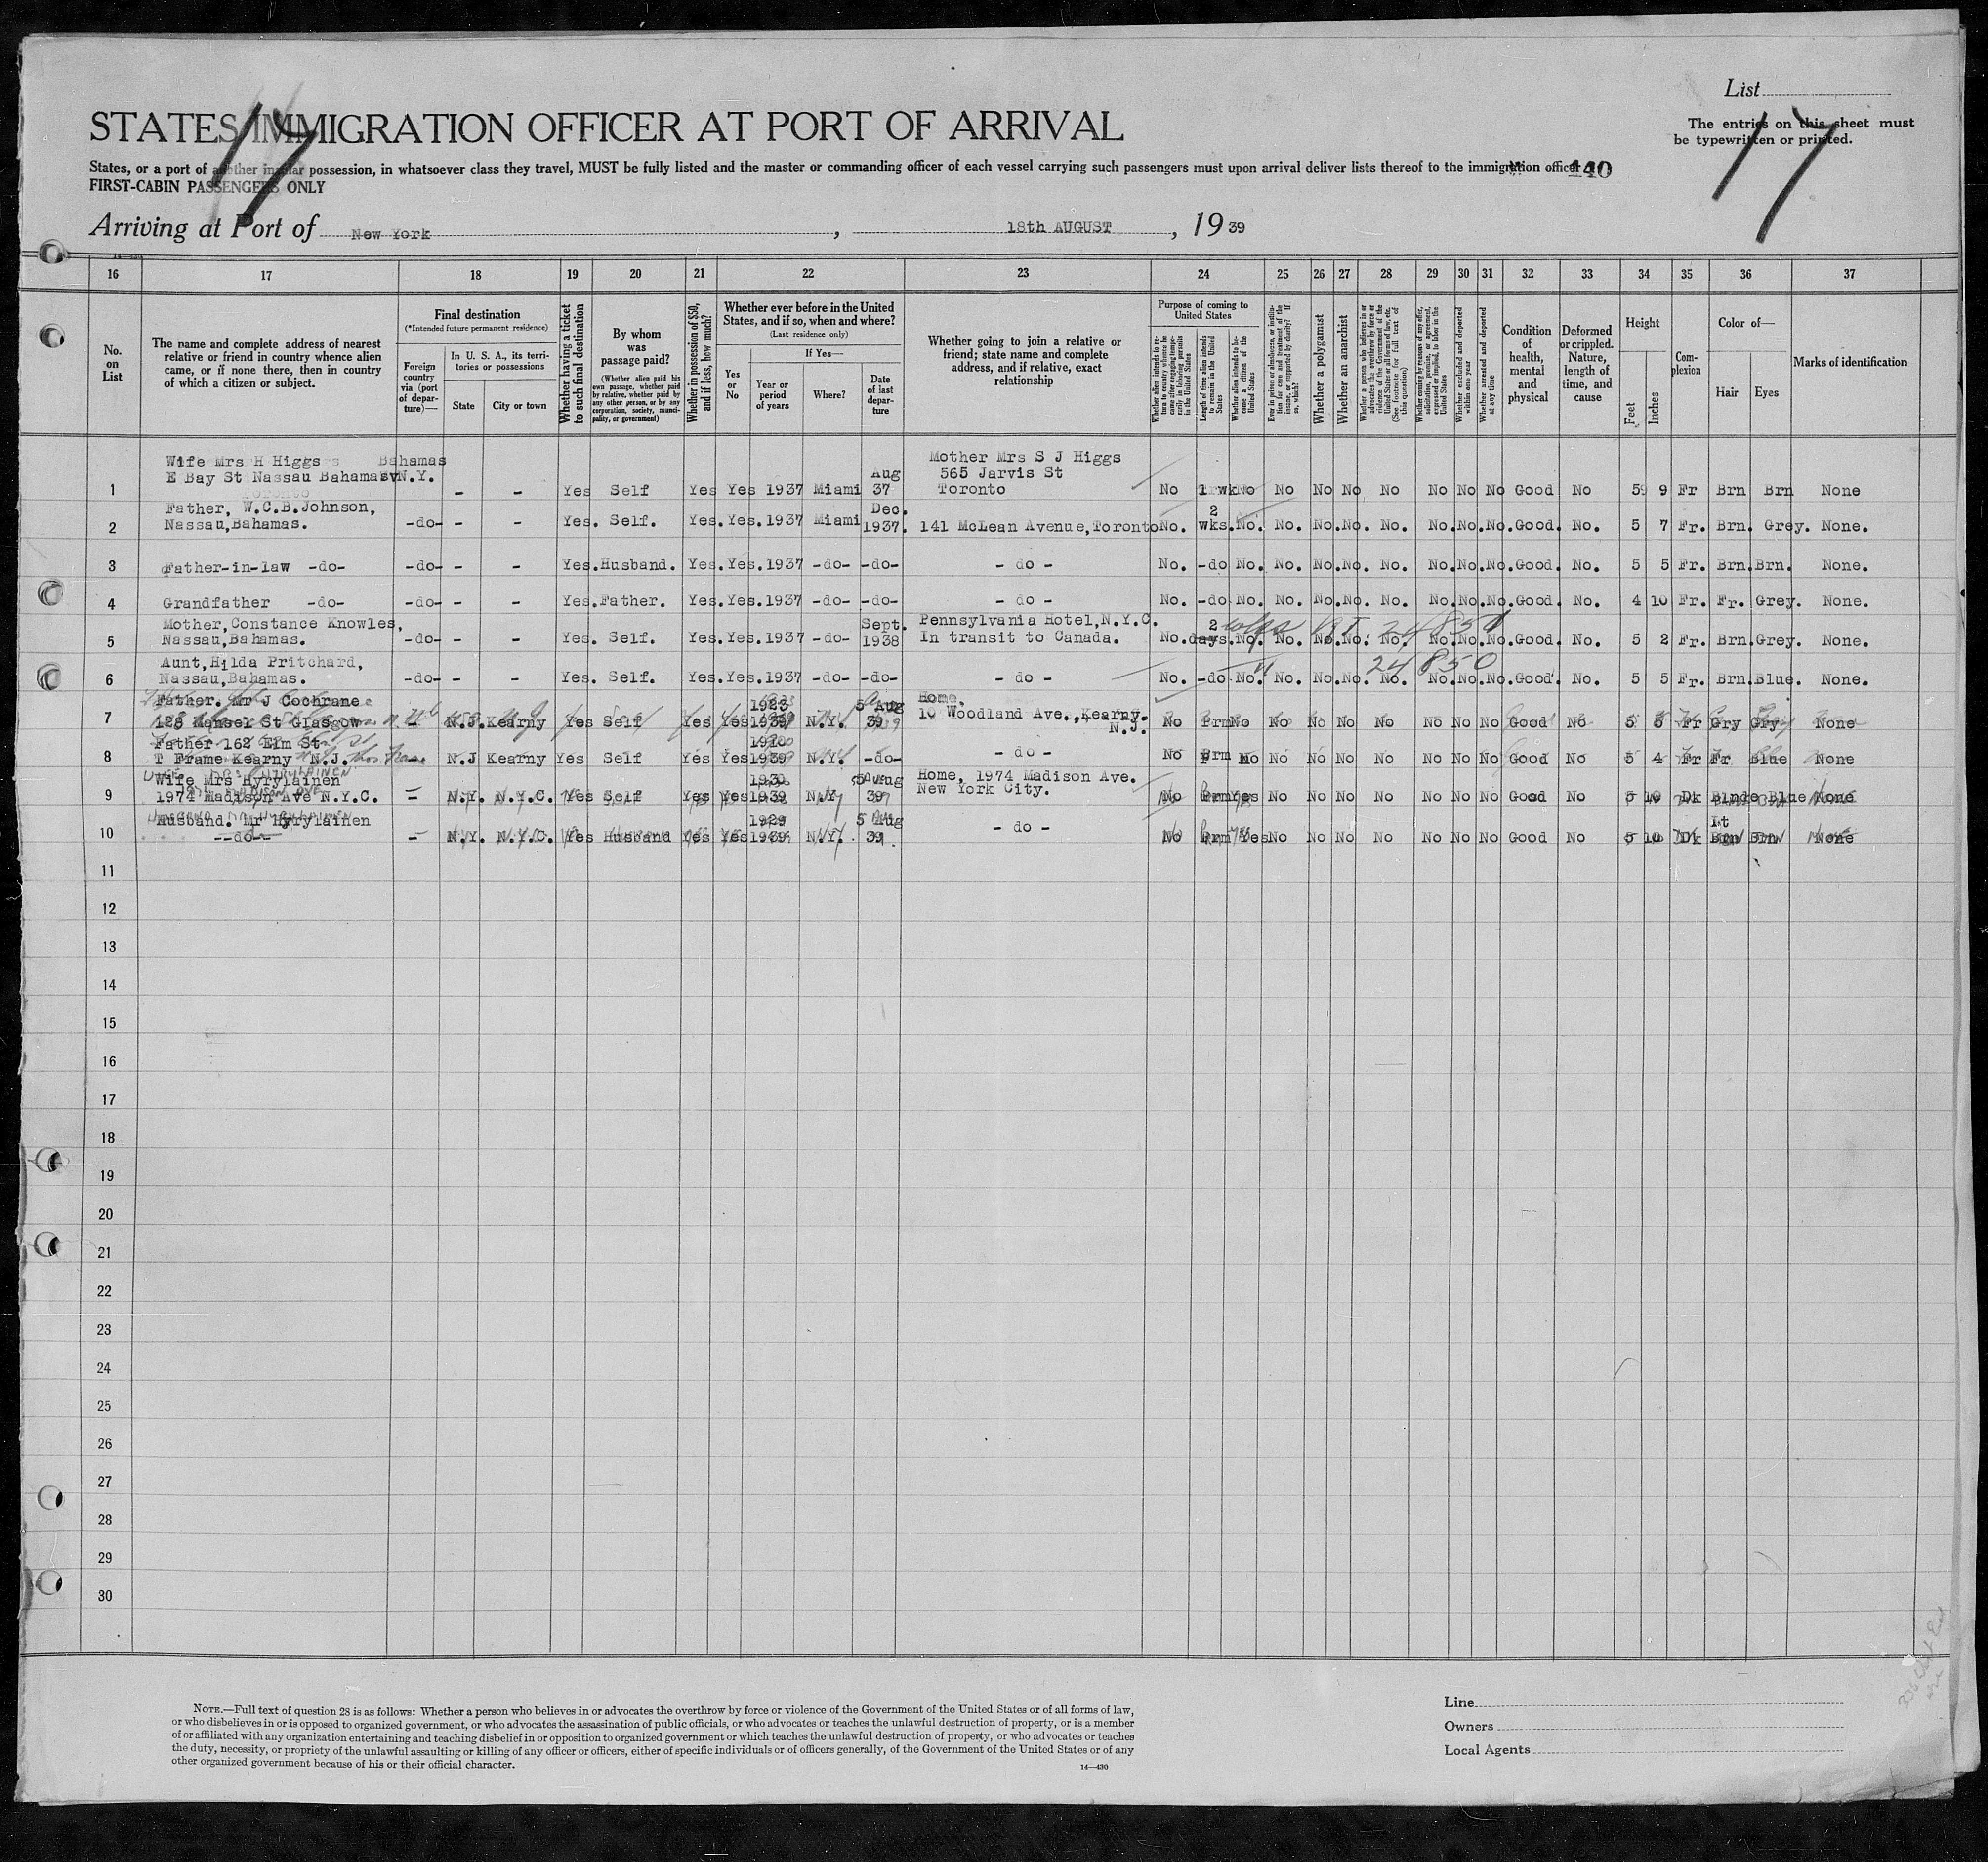 List
17
17
The entries on this sheet must
be typewritten or printed.
STATES IMMIGRATION OFFICER AT PORT OF ARRIVAL
States, or a port of another insular possession, in whatsoever class they travel, MUST be fully listed and the master or commanding officer of each vessel carrying such passengers must upon arrival deliver lists thereof to the immigration officer
140
FIRST-CABIN PASSENGERS ONLY
Arriving at Port of New York, 18th AUGUST, 1939
16 17 18 19 20 21 22 23 24 25 26 27 28 29 30 31 32 33 34 35 36 37
No. on List
The name and complete address of nearest relative or friend in country whence alien came, or if none there, then in country of which a citizen or subject.
Final destination
(*Intended future permanent residence)
Foreign country via (port of departure)—
In U. S. A., its territories or possessions
State
City or town
Whether having a ticket to such final destination
By whom was passage paid?
(Whether alien paid his own passage, whether paid by relative, whether paid by any other person, or by any corporation, society, municipality, or government)
Whether in possession of $50, and if less, how much?
Whether ever before in the United States, and if so, when and where?
(Last residence only)
Yes or No
If Yes—
Year or period of years
Where?
Date of last departure
Whether going to join a relative or friend; state name and complete address, and if relative, exact relationship
Purpose of coming to United States
Whether alien intends to return to country whence he came after engaging temporarily in laboring pursuits in the United States
Length of time alien intends to remain in the United States
Whether alien intends to become a citizen of the United States
Ever in prison or almshouse, or institution for care and treatment of the insane, or supported by charity? If so, which?
Whether a polygamist
Whether an anarchist
Whether a person who believes in or advocates the overthrow by force or violence of the Government of the United States or all forms of law, etc. (See footnote for full text of this question)
Whether coming by reasons of any offer, solicitation, promise, or agreement, expressed or implied, to labor in the United States
Whether excluded and deported within one year
Whether arrested and deported at any time
Condition of health, mental and physical
Deformed or crippled. Nature, length of time, and cause
Height
Feet
Inches
Complexion
Color of—
Hair
Eyes
Marks of identification
Wife Mrs H Higgs Bahamas Aug Mother Mrs S J Higgs
E Bay St Nassau Bahamas N.Y. 565 Jarvis St
1 - - Yes Self Yes Yes 1937 Miami 37 Toronto No 1 wk No No No No No No No No Good No 5 9 Fr Brn Brn None
Father, W.C.B.Johnson, Dec. 2
2 Nassau,Bahamas. -do- - - Yes. Self. Yes. Yes. 1937 Miami 1937. 141 McLean Avenue,Toronto No. wks. No. No. No. No. No. No. No. No. Good. No. 5 7 Fr. Brn. Grey. None.
3 Father-in-law -do- -do- - - Yes. Husband. Yes. Yes. 1937 -do- -do- - do - No. -do No. No. No. No. No. No. No. No. Good. No. 5 5 Fr. Brn. Brn. None.
4 Grandfather -do- -do- - - Yes. Father. Yes. Yes. 1937 -do- -do- - do - No. -do No. No. No. No. No. No. No. No. Good. No. 4 10 Fr. Fr. Grey. None.
Mother, Constance Knowles, Sept. Pennsylvania Hotel,N.Y.C. 2
5 Nassau,Bahamas. -do- - - Yes. Self. Yes. Yes. 1937 -do- 1938 In transit to Canada. No. days. No. No. No. No. No. No. No. No. Good. No. 5 2 Fr. Brn. Grey. None.
Aunt,Hilda Pritchard, 24850
6 Nassau,Bahamas. -do- - - Yes. Self. Yes. Yes. 1937 -do- -do- - do - No. -do No. No. No. No. No. No. No. No. Good. No. 5 5 Fr. Brn. Blue. None.
Father. Mr J Cochrane 1923 5 Aug Home,
7 128 Mansel St Glasgow - N.J. Kearny Yes Self Yes Yes 1939 N.Y. 39 10 Woodland Ave., Kearny. N.J. No Prm No No No No No No No No Good No 5 8 Fr Gry Gry None
Father 162 Elm St 1910
8 T Frame Kearny N.J. - N.J Kearny Yes Self Yes Yes 1939 N.Y. -do- - do - No Prm No No No No No No No No Good No 5 4 Fr Fr Blue None
Wife Mrs Hyrylainen 1930 5 Aug Home, 1974 Madison Ave.
9 1974 Madison Ave N.Y.C. - N.Y. N.Y.C. Yes Self Yes Yes 1939 N.Y 39 New York City. No Prm Yes No No No No No No No Good No 5 10 Dk Blnde Blue None
Husband. Mr Hyrylainen 1929 5 Aug Lt
10 --do-- - N.Y. N.Y.C. Yes Husband Yes Yes 1939 N.Y. 39 - do - No Prm Yes No No No No No No No Good No 5 10 Dk Brn Brn None
11
12
13
14
15
16
17
18
19
20
21
22
23
24
25
26
27
28
29
30
NOTE.—Full text of question 28 is as follows: Whether a person who believes in or advocates the overthrow by force or violence of the Government of the United States or of all forms of law,
or who disbelieves in or is opposed to organized government, or who advocates the assassination of public officials, or who advocates or teaches the unlawful destruction of property, or is a member
of or affiliated with any organization entertaining and teaching disbelief in or opposition to organized government or which teaches the unlawful destruction of property, or who advocates or teaches
the duty, necessity, or propriety of the unlawful assaulting or killing of any officer or officers, either of specific individuals or of officers generally, of the Government of the United States or of any
other organized government because of his or their official character.
14—430
Line
Owners
Local Agents